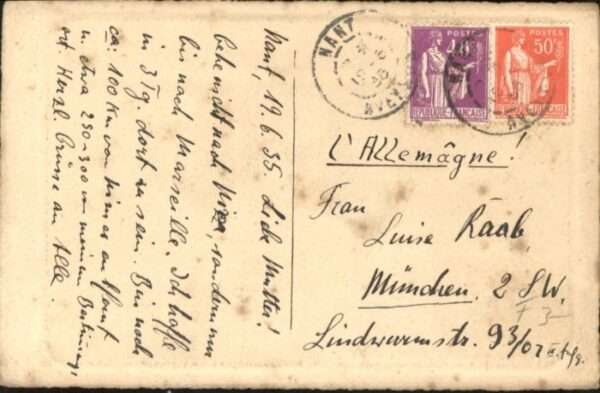 Nant, 19.6.35. Liebe Mutter!
gehe nicht nach Nizza, sondern nur
bis nach Marseille. Ich hoffe
in 3 Tg. dort zu sein. Bin noch
ca. 100 Km von hier in Nant
u. etwa 250-300 von meinem
ort. Herzl. Grüsse an Alle.
NANT
AVEYRON
POSTES
REPUBLIQUE FRANÇAISE
POSTES
50c
REPUBLIQUE FRANÇAISE
L'Allemâgne!
Frau
Luise Raab
München, 2 SW.
Lindwurmstr. 93/0